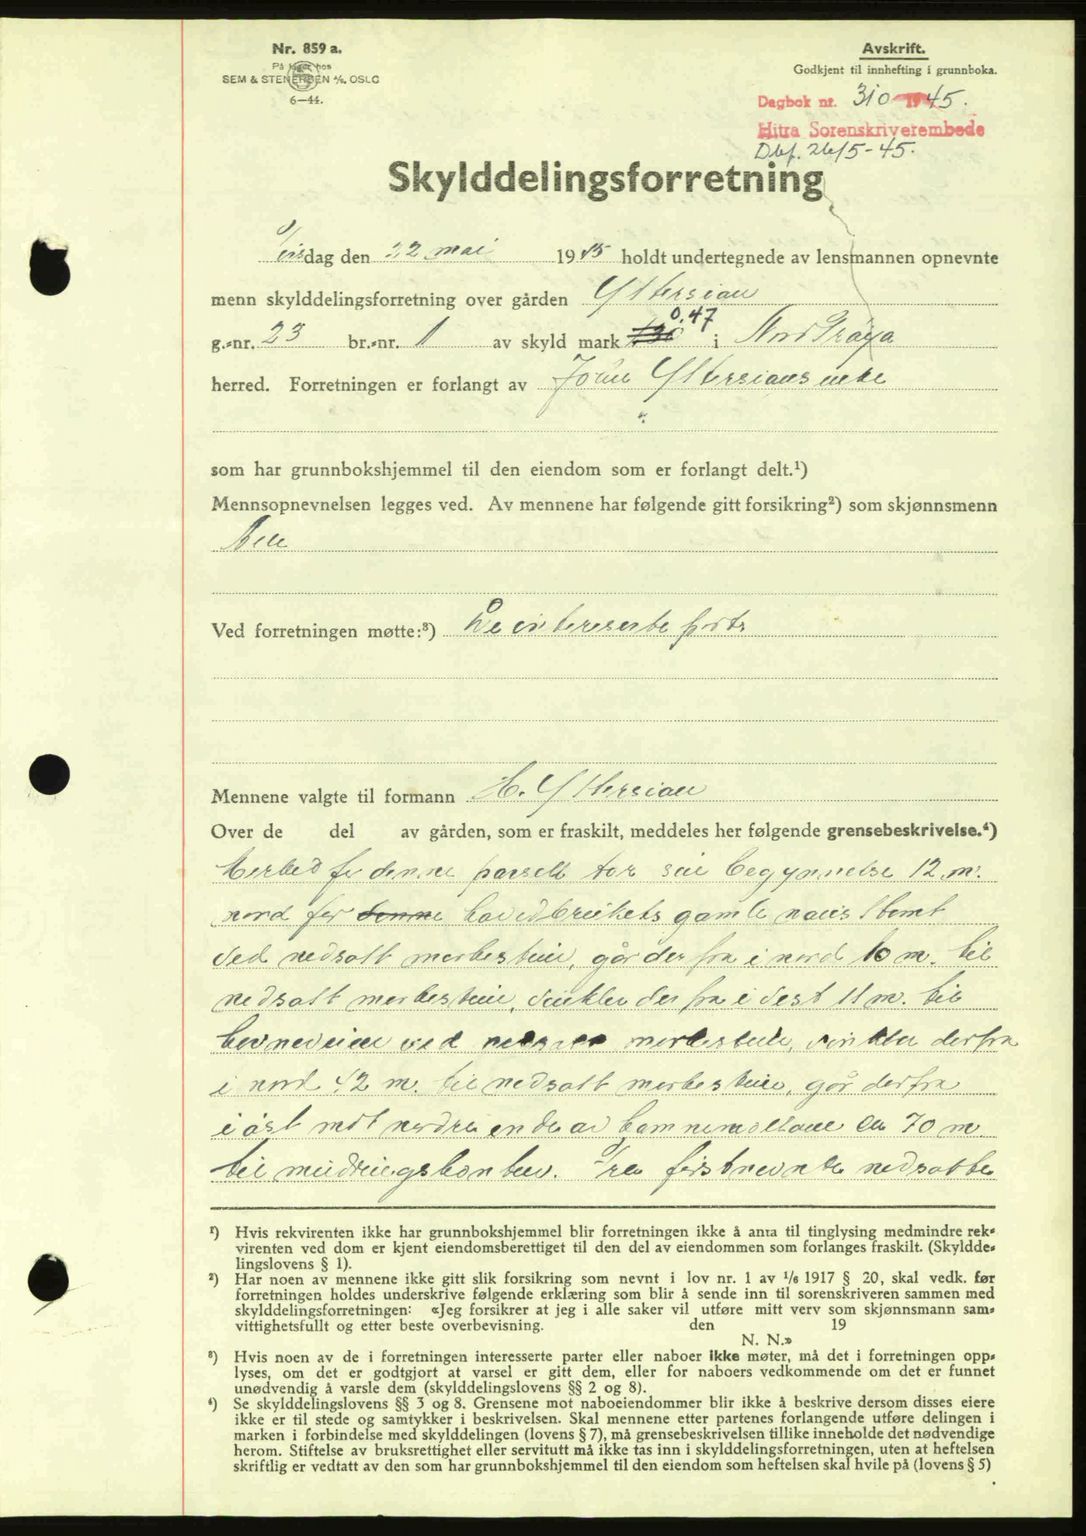 Nr. 859 a.
På lager hos
SEM & STENERSEN A/S. OSLO
6—44.
Avskrift.
Godkjent til innhefting i grunnboka.
Dagbok nr. 310 1945.
Hitra Sorenskriverembede
Dbf. 26/5-45.
Skylddelingsforretning
Tirsdag den 22 mai 1945 holdt undertegnede av lensmannen opnevnte
menn skylddelingsforretning over gården Yttersian
0.47
g.-nr. 23 br.-nr. 1 av skyld mark i Nord Frøya
herred. Forretningen er forlangt av Yttersian
som har grunnbokshjemmel til den eiendom som er forlangt delt.¹)
Mennsopnevnelsen legges ved. Av mennene har følgende gitt forsikring²) som skjønnsmenn
Alle
Ved forretningen møtte:³) De interesserte parter
Mennene valgte til formann H. Yttersian
Over de del av gården, som er fraskilt, meddeles her følgende grensebeskrivelse.⁴)
Merked for denne parsell tar sin begynnelse 12 m.
nord for denne hovedbrukets gamle nausttomt
ved nedsatt merkestein, går derfra i nord 10 m. til
nedsatt merkestein, vinkler derfra i vest 11 m. til
ved nedsatt merkestein, vinkler derfra
i nord 42 m. til nedsatt merkestein, går derfra
i øst mot nordre ende av ca 70 m.
til Fra førstnevnte nedsatte
¹) Hvis rekvirenten ikke har grunnbokshjemmel blir forretningen ikke å anta til tinglysing medmindre rek-
virenten ved dom er kjent eiendomsberettiget til den del av eiendommen som forlanges fraskilt. (Skyldde-
lingslovens § 1).
²) Har noen av mennene ikke gitt slik forsikring som nevnt i lov nr. 1 av 1/6 1917 § 20, skal vedk. før
forretningen holdes underskrive følgende erklæring som blir å sende inn til sorenskriveren sammen med
skylddelingsforretningen: «Jeg forsikrer at jeg i alle saker vil utføre mitt verv som skjønnsmann sam-
vittighetsfullt og etter beste overbevisning. den 19
N. N.»
³) Hvis noen av de i forretningen interesserte parter eller naboer ikke møter, må det i forretningen opp-
lyses, om det er godtgjort at varsel er gitt dem, eller for naboers vedkommende om det er funnet
unødvendig å varsle dem (skylddelingslovens §§ 2 og 8).
⁴) Se skylddelingslovens §§ 3 og 8. Grensene mot naboeiendommer blir ikke å beskrive dersom disses eiere
ikke er til stede og samtykker i beskrivelsen. Skal mennene etter partenes forlangende utføre delingen i
marken i forbindelse med skylddelingen (lovens § 7), må grensebeskrivelsen tillike inneholde det nødvendige
herom. Stiftelse av bruksrettighet eller servitutt må ikke tas inn i skylddelingsforretningen, uten at heftelsen
skriftlig er vedtatt av den som har grunnbokshjemmel til den eiendom som heftelsen skal hvile på (lovens § 5)